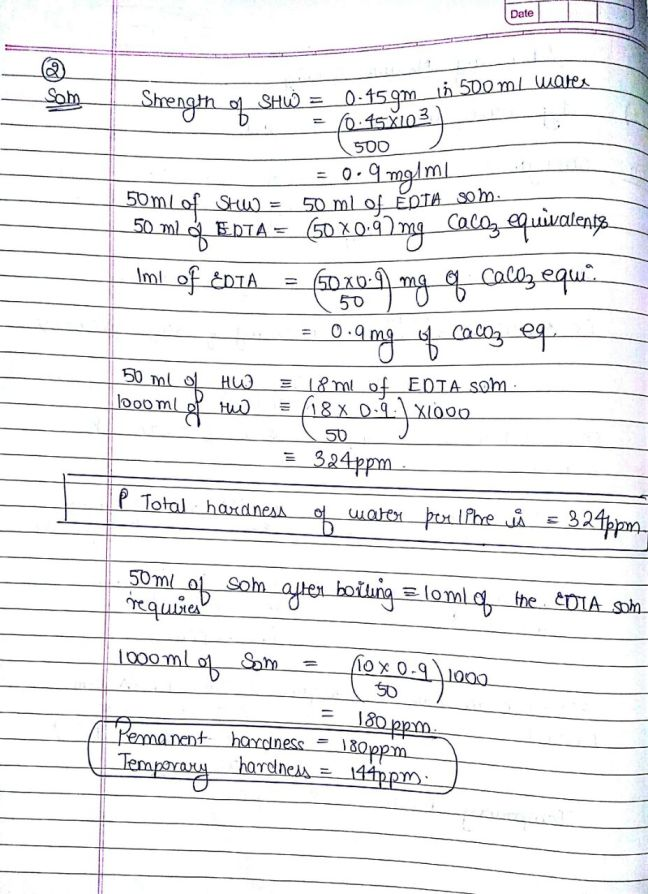 Date
②
Soln Strength of SHW = 0.45gm in 500ml water
= (0.45×10³/500)
= 0.9 mg/ml
50ml of SHW = 50 ml of EDTA soln.
50 ml of EDTA = (50×0.9) mg CaCO₃ equivalents
1ml of EDTA = (50×0.9/50) mg of CaCO₃ equi.
= 0.9mg of CaCO₃ eq.
50 ml of HW ≡ 18ml of EDTA soln.
1000ml of HW ≡ (18 × 0.9/50) ×1000
≡ 324ppm.
Total hardness of water per litre is = 324ppm
50ml of soln after boiling ≡ 10ml of the EDTA soln
requires
1000ml of Soln = (10 × 0.9/50) 1000
= 180ppm.
Permanent hardness = 180ppm
Temporary hardness = 144ppm.